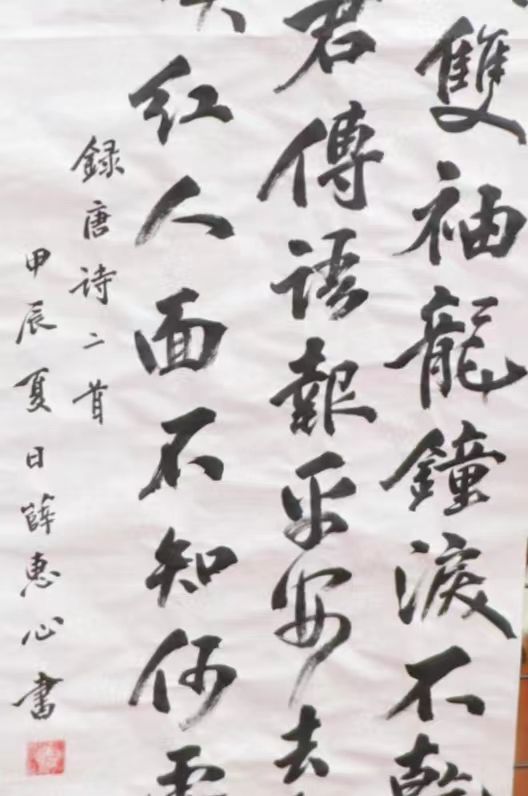 雙袖龍鐘淚不乾
君傳語報平安去
红人面不知何
録唐诗二首
甲辰夏日薛惠心書